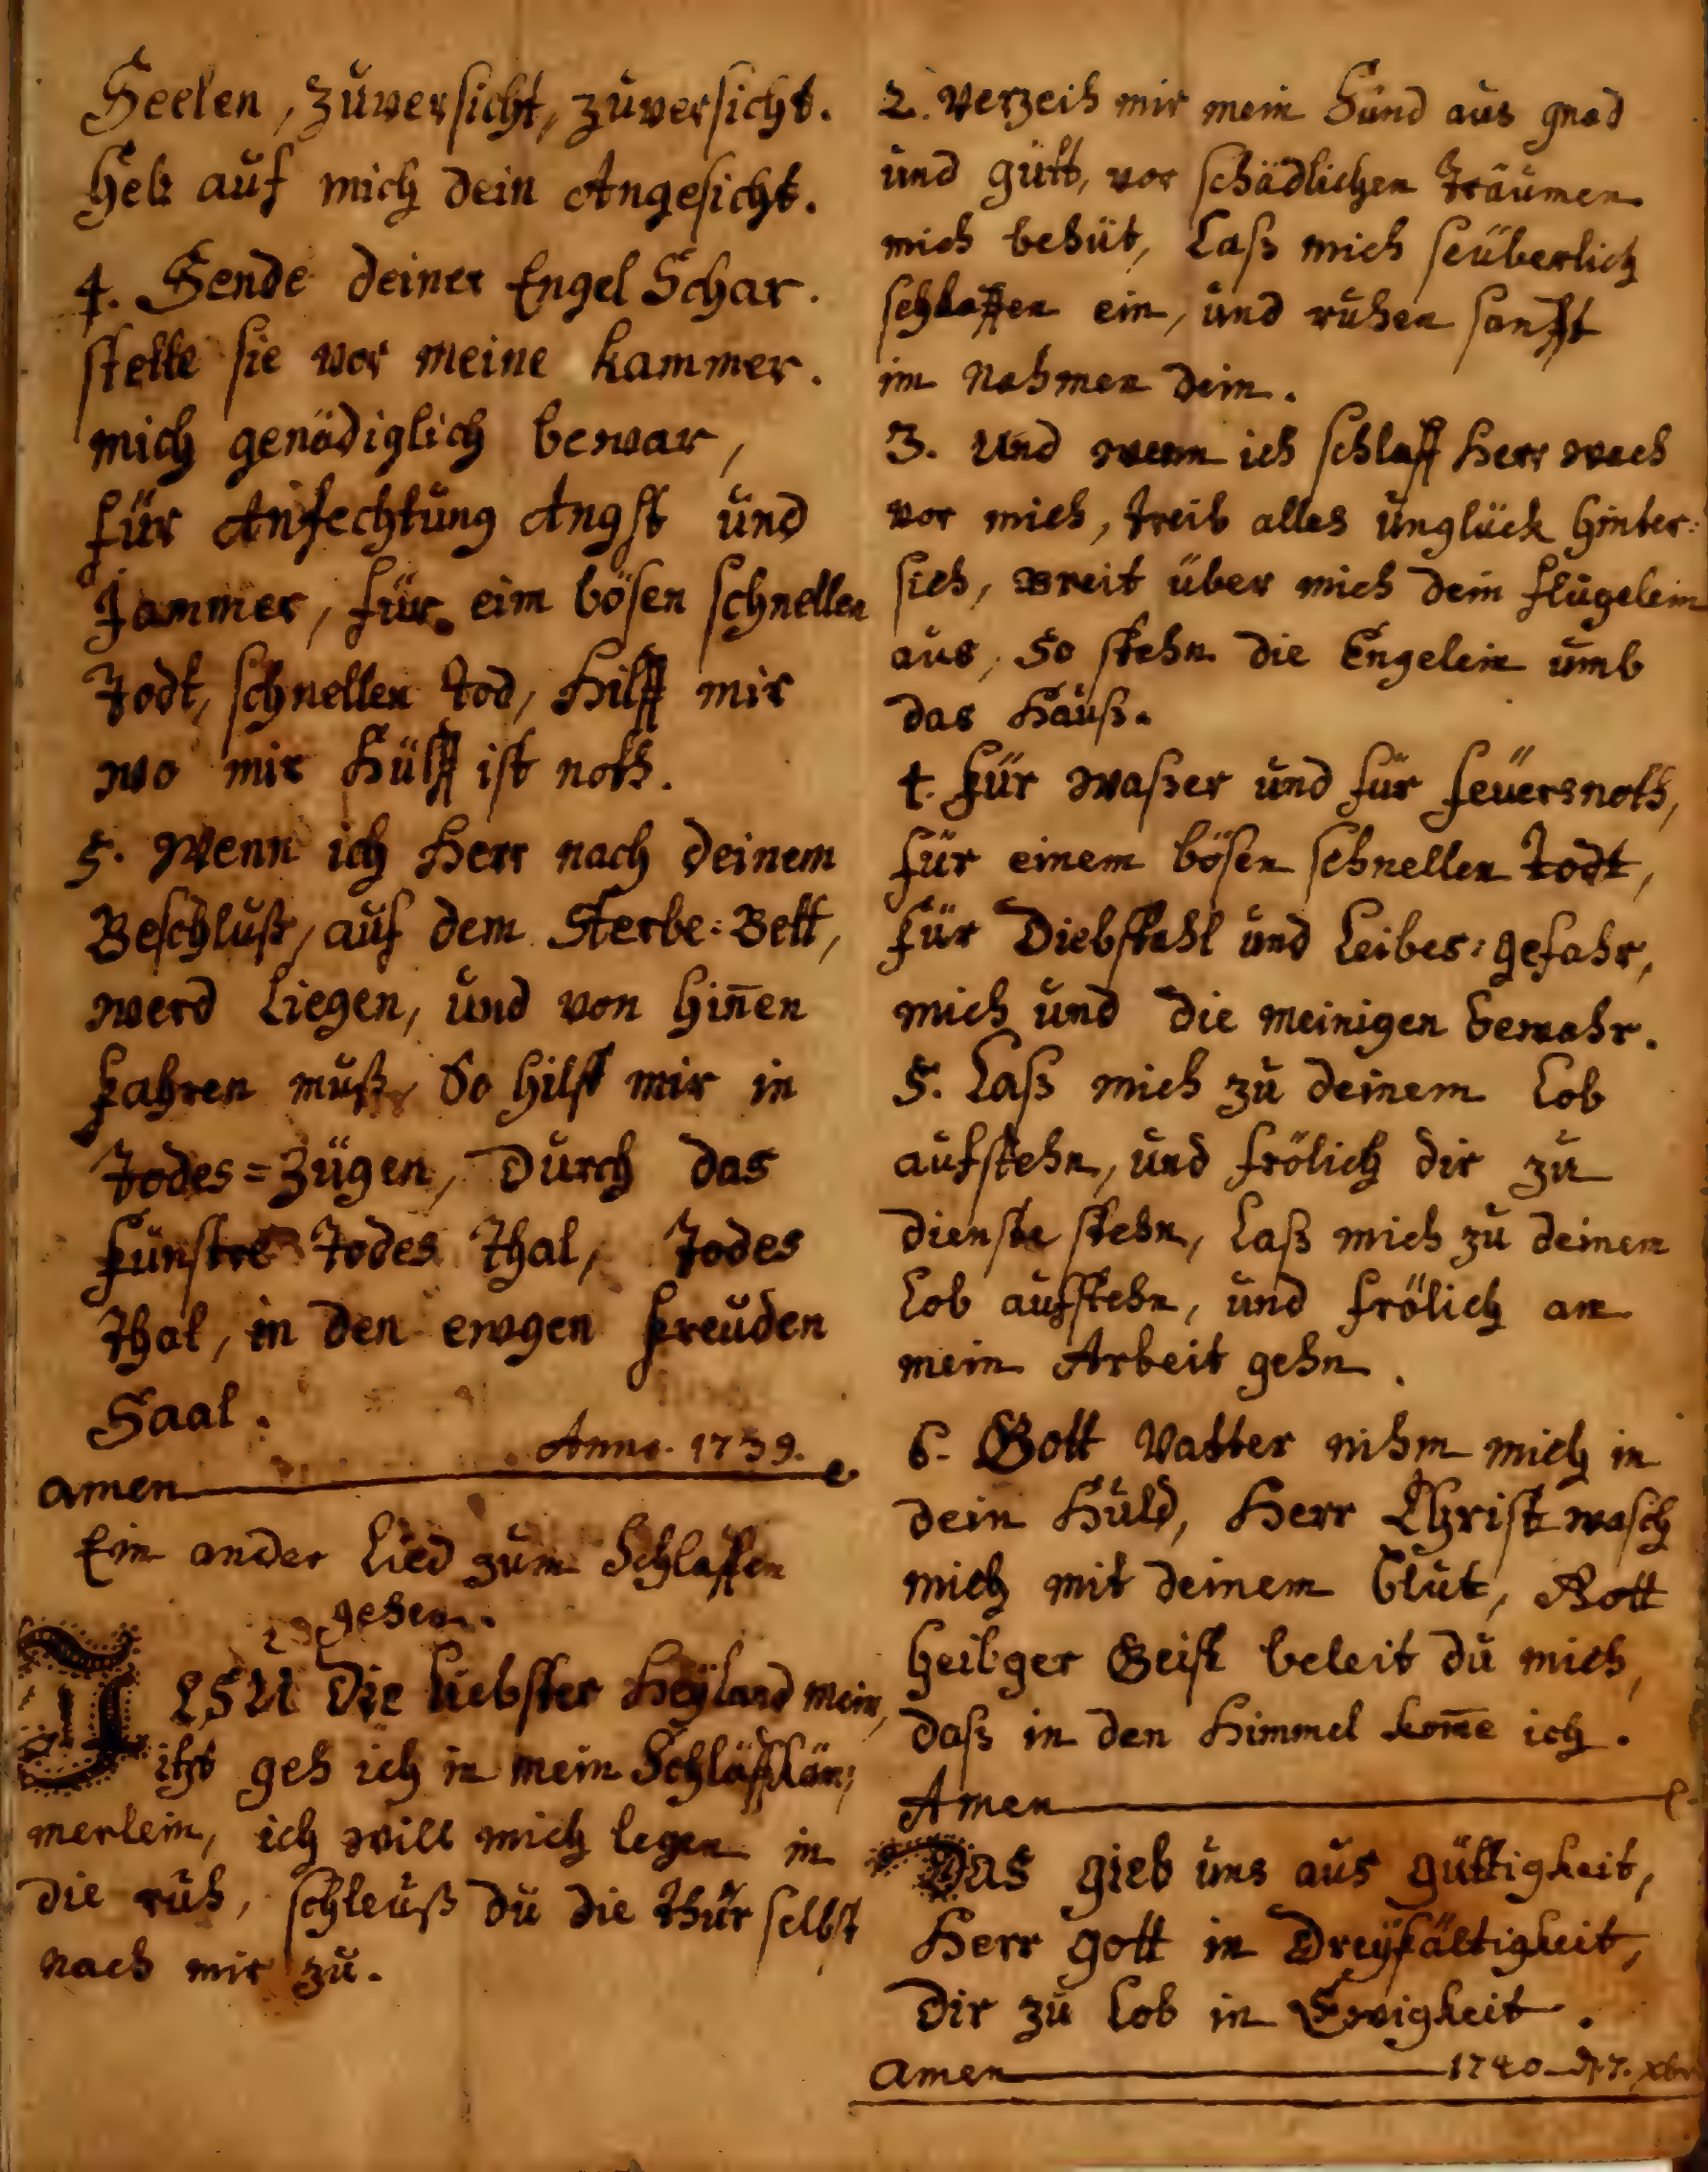 Seelen, Zuversicht, zuversicht.
Heb auf mich dein Angesicht.
4. Sende deiner Engel Schar.
stelle sie vor meine kammer.
mich genädiglich bewar,
für Anfechtung Angst und
Jammer, für eim bösen schnellen
Todt, schnellen tod, Hilff mir
wo mir Hülff ist noth.
5. Wenn ich Herr nach deinem
Beschluß, auf dem Sterbe=Bett,
werd Liegen, und von hin̄en
fahren muß, So hilff mir in
Todes=Zügen, Durch das
fünstre Todes Thal, Todes
Thal, in den ewgen freuden
Saal.
Anno. 1739.
amen
Ein ander Lied zum Schlaffen
gehen.
JESU Die liebster Heÿland mein,
itzt geh ich in mein Schläfkäm=
merlein, ich will mich legen in
die ruh, schleuß du die Thür selbst
nach mir zu.
2. Verzeih mir mein Sünd aus gnad
und gütt, vor schädlichen träumen
mich behüt, Laß mich seüberlich
schlaffen ein, und ruhen sanfft
im Nahmen dein.
3. Und wenn ich schlaff Herr wach
vor mich, treib alles unglück hinter=
sich, Breit über mich dein flügelein
aus, So stehn die Engelein umb
das Hauß.
4. für waßer und für feüersnoth,
für einem bösen schnellen Todt,
für Diebstahl und Leibes=gefahr,
mich und die meinigen bewahr.
5. Laß mich zu deinem Lob
aufstehn, und frölich dir zu
dienste stehn, Laß mich zu deinem
Lob aufstehn, und frölich an
mein Arbeit gehn.
6. Gott Vatter nihm mich in
dein Huld, Herr Christ wasch
mich mit deinem blut, Gott
heilger Geist beleit du mich,
daß in den Himmel kom̄e ich.
Amen
Das gieb uns aus güttigkeit,
Herr gott in Dreÿfältigkeit,
Dir zu Lob in Ewigkeit.
amen 1740